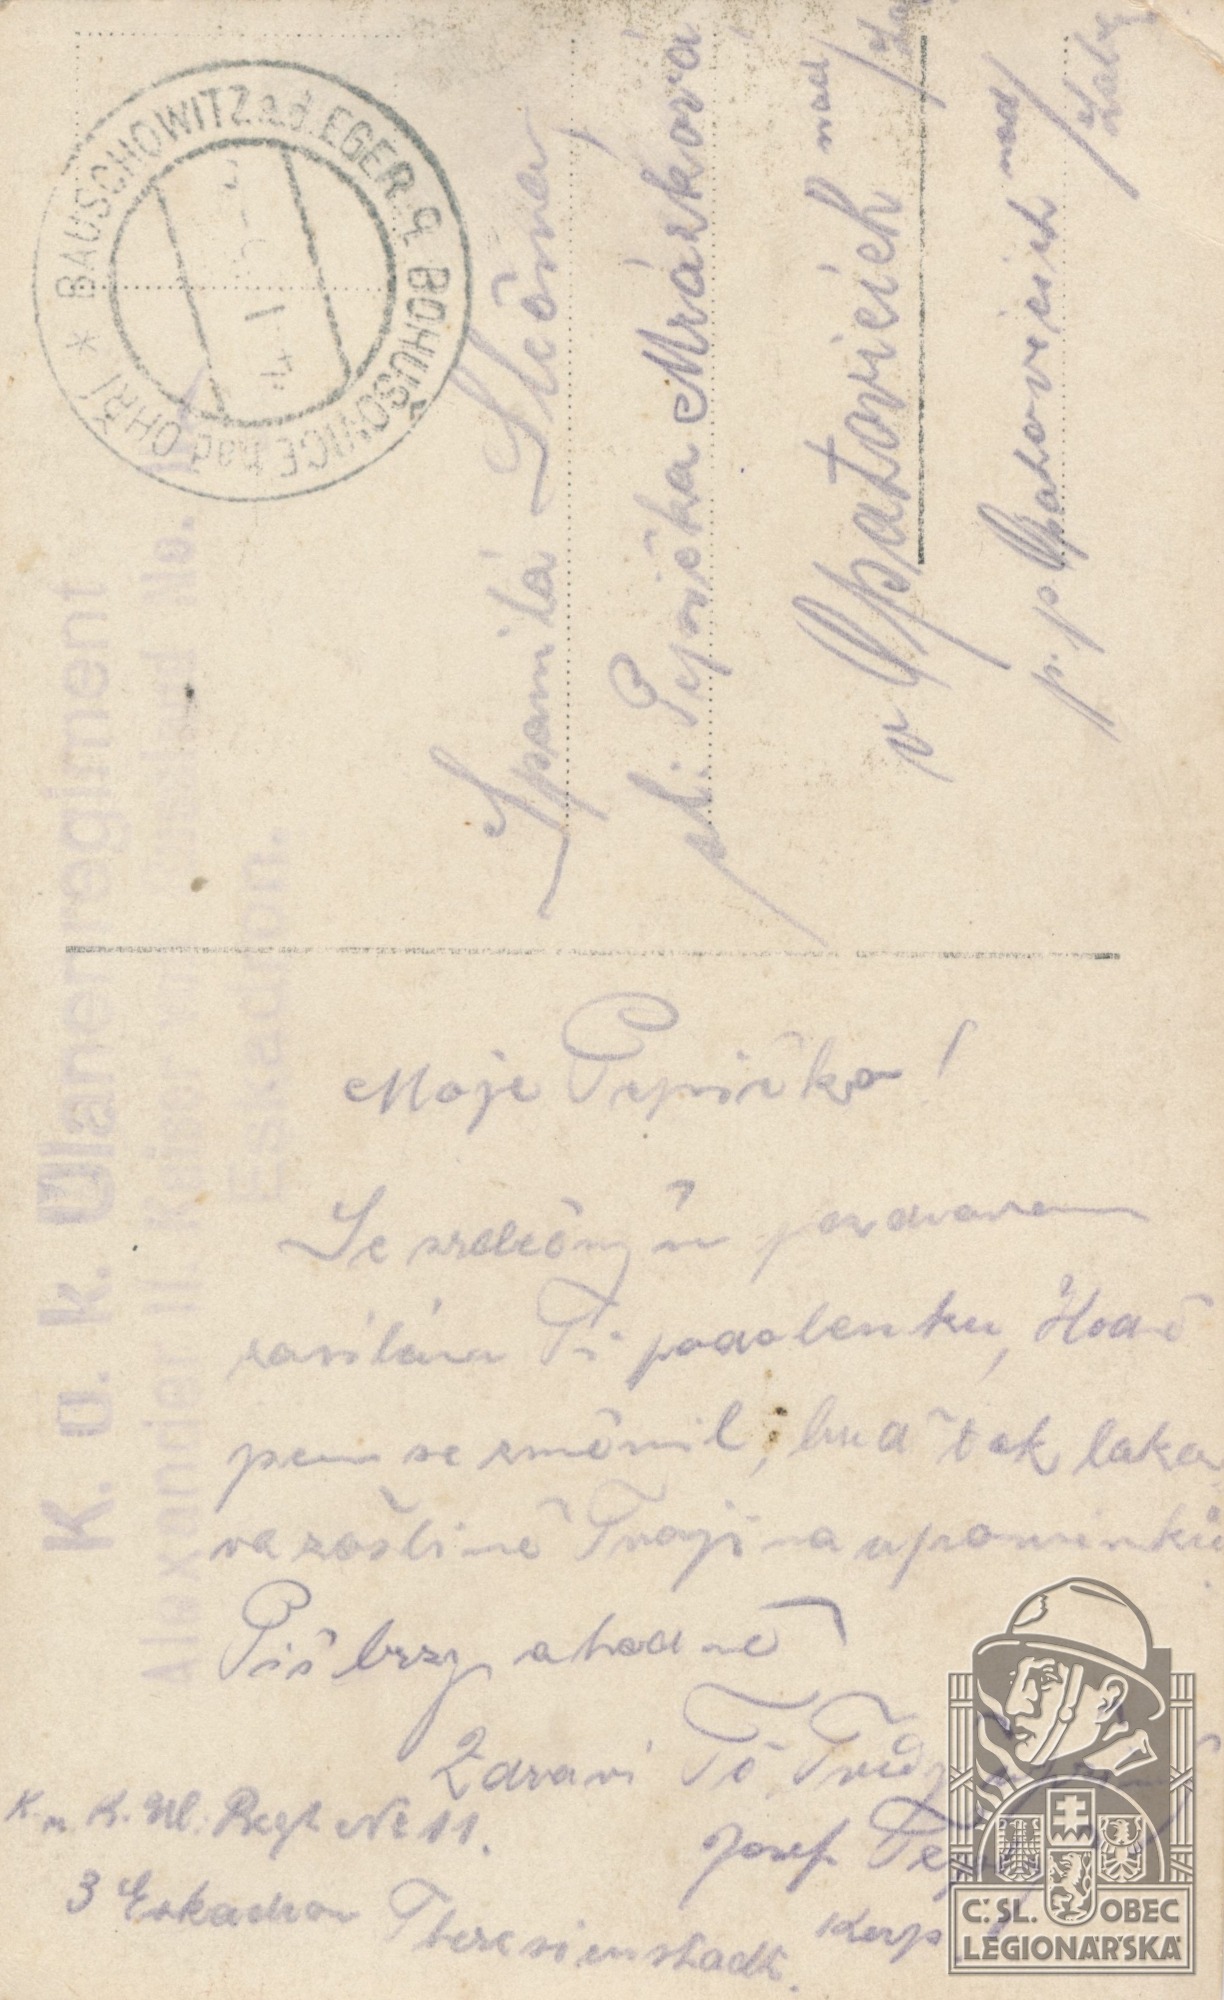 BAUSCHOWITZ a.d. EGER * BOHUŠOVICE nad OHŘÍ *
K. u. k. Ulanenregiment
Alexander II. Kaiser von Russland No.
Eskadron.
Spanilá Slečna
sl. Pepička Mrázková
v Opatovicích nad
p. p. Opatovicích nad
Moje Pepičko!
Se srdečným pozdravem
zasílám Ti podobenku, Hodě
jsem se změnil, buď tak laka
va zašli mě Tvoji na upomínku
Piš brzy a hodně
Zdraví Tě, Tvůj
Josef
Korp.
K. u. K. Ul. Regt № 11.
3 Eskadron Theresienstadt.
Č. SL. OBEC
LEGIONÁŘSKÁ